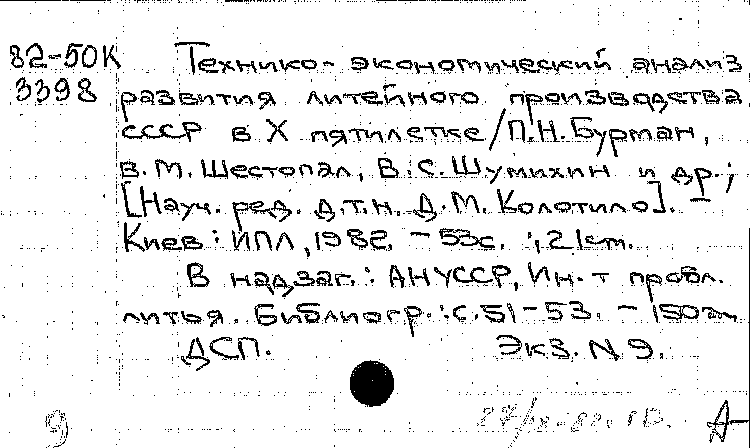 82-50К Технико-экономический анализ
3398 развития литейного производства
СССР в X пятилетке/П.Н.Бурман,
В.М.Шестопал, В.С.Шумихин и др.;
[Науч. ред. д.т.н. Д.М. Колотило]. –
Киев: ИПЛ, 1982. – 53с. ; 21см.
В надзаг.: АН УССР, Ин-т пробл.
литья. Библиогр.: с.51-53. – 150
ДСП. Экз. N 9.
9